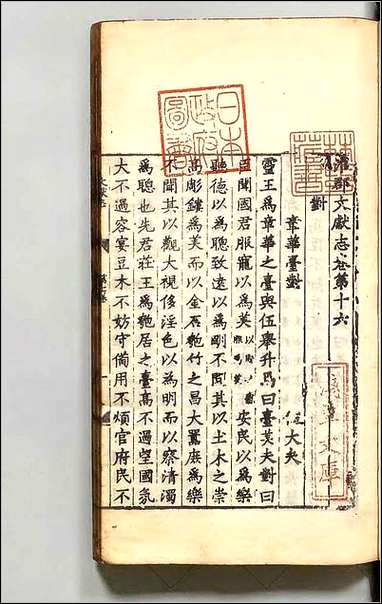 郡文獻志卷第十六
對
章華臺對
伍大夫
靈王爲章華之臺與伍舉升焉曰臺美夫對曰
臣聞國君服寵以爲美安民以爲樂
聽德以爲聰致遠以爲明不聞其以土木之崇
高彫鏤爲美而以金石匏竹之昌大囂庶爲樂
不聞其以觀大視侈淫色以為明而以察清濁
爲聰也先君莊王爲匏居之臺高不過望國氛
大不過容宴豆木不妨守備用不煩官府民不
日本
政府
圖書
林
藏書
文庫